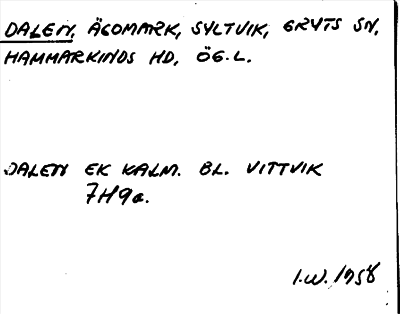 DALEN, ÄGOMARK, SYLTVIK, GRYTS SN,
HAMMARKINDS HD, ÖG.L.
DALEN EK KALM. BL. VITTVIK
7H9a.
I.W. 1958